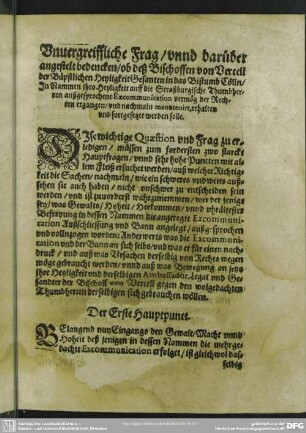 Vnuergreiffliche Frag / vnnd darüber
angestelt bedencken / ob deß Bischoffen von Vercell
der Bäpstlichen Heyligkeit Gesanten in das Bistumb Cölln /
In Nammen ihro Heyligkeit auff die Straßburgische Thumbher-
ren außgesprochene Excommunication vermög der Rech-
ten ergangen / vnd nachmaln manteniert, erhalten
vnd fortgesetzt werden solle.
DIse wichtige Quæstion vnd Frag zu er-
ledigen / müssen zum fordersten zwo starcke
Hauptfragen / vnnd sehr hohe Puncten mit al-
lem Fleiß ersuchet werden / auß welcher Richtig-
keit die Sachen / nachmaln / wie ein schweres vnd weits auß-
sehen sie auch haben / nicht vnschwer zu entscheiden sein
werden / vnd ist zuvorderst wahrzunemmen / wer der jenig
sey / was Gewalts / Hoheit / Herkommen / vnnd vhrältester
Befreyung in dessen Nammen die angeregte Excommuni-
cation Außschliessung vnd Bann angelegt / außgesprochen
vnd vollnzogen worden: Anderwerts was die Excommuni-
cation vnd der Bannen sich selbs / vnd was er für einen nach-
druck / vnd auß was Vrsachen derselbig von Rechts wegen
möge gebraucht werden / vnnd auß was Bewegung an jetzo
ihre Heyligkeit vnd derselbigen Ambassador, Legat vnd Ge-
sandter der Bischoff von Vercell gegen den wolgedachten
Thumbherren derselbigen sich gebrauchen wöllen.
Der Erste Hauptpunct.
BElangend nun Eingangs den Gewalt / Macht vnnd
Hoheit deß jenigen in dessen Nammen die mehrge-
dachte Excommunication erfolget / ist gleichwol das-
selbig